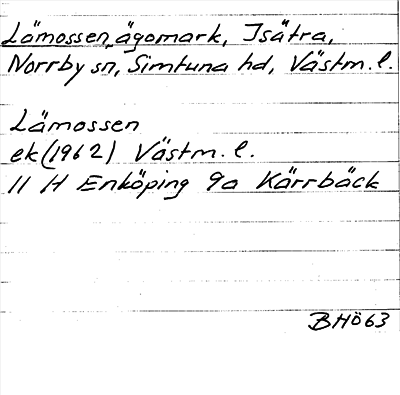 Lämossen, ägomark, Isätra,
Norrby sn, Simtuna hd, Västm. l.
Lämossen
ek (1962) Västm. l.
11 H Enköping 9a Kärrbäck
BHö63